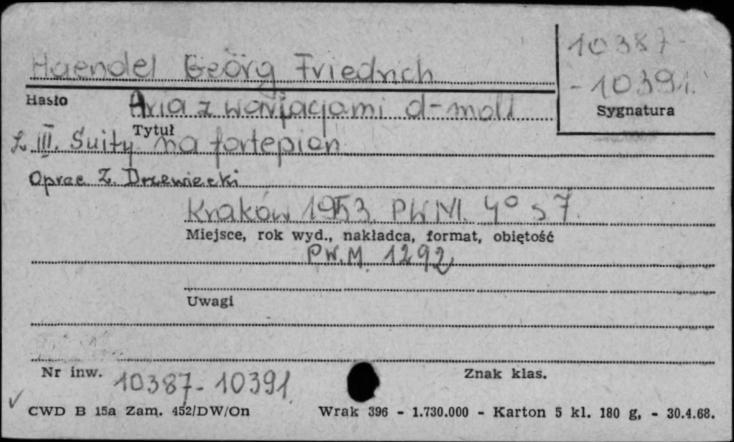 10387-
Haendel Georg Friedrich
-10391.
Hasło
Aria z warjacjami d-moll
Sygnatura
Tytuł
z III. Suity na fortepian
Oprac Z. Drzewiecki
Kraków 1953. PWM. 4° s 7.
Miejsce, rok wyd., nakładca, format, objętość
P.W.M. 1292
Uwagi
Nr inw. 10387-10391
Znak klas.
CWD B 15a Zam. 452/DW/On Wrak 396 - 1.730.000 - Karton 5 kl. 180 g, - 30.4.68.